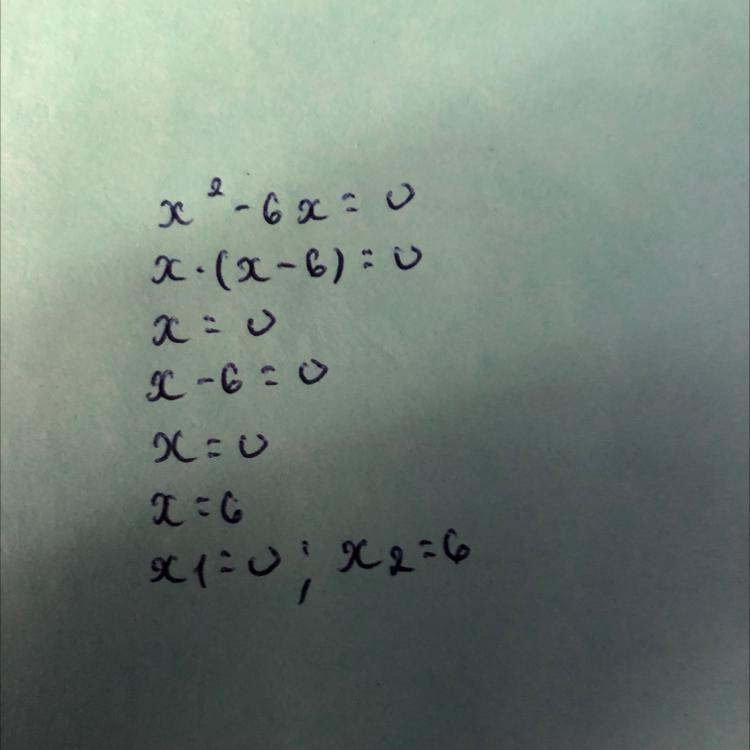 x² - 6x = 0
x · (x - 6) = 0
x = 0
x - 6 = 0
x = 0
x = 6
x1 = 0 ; x2 = 6